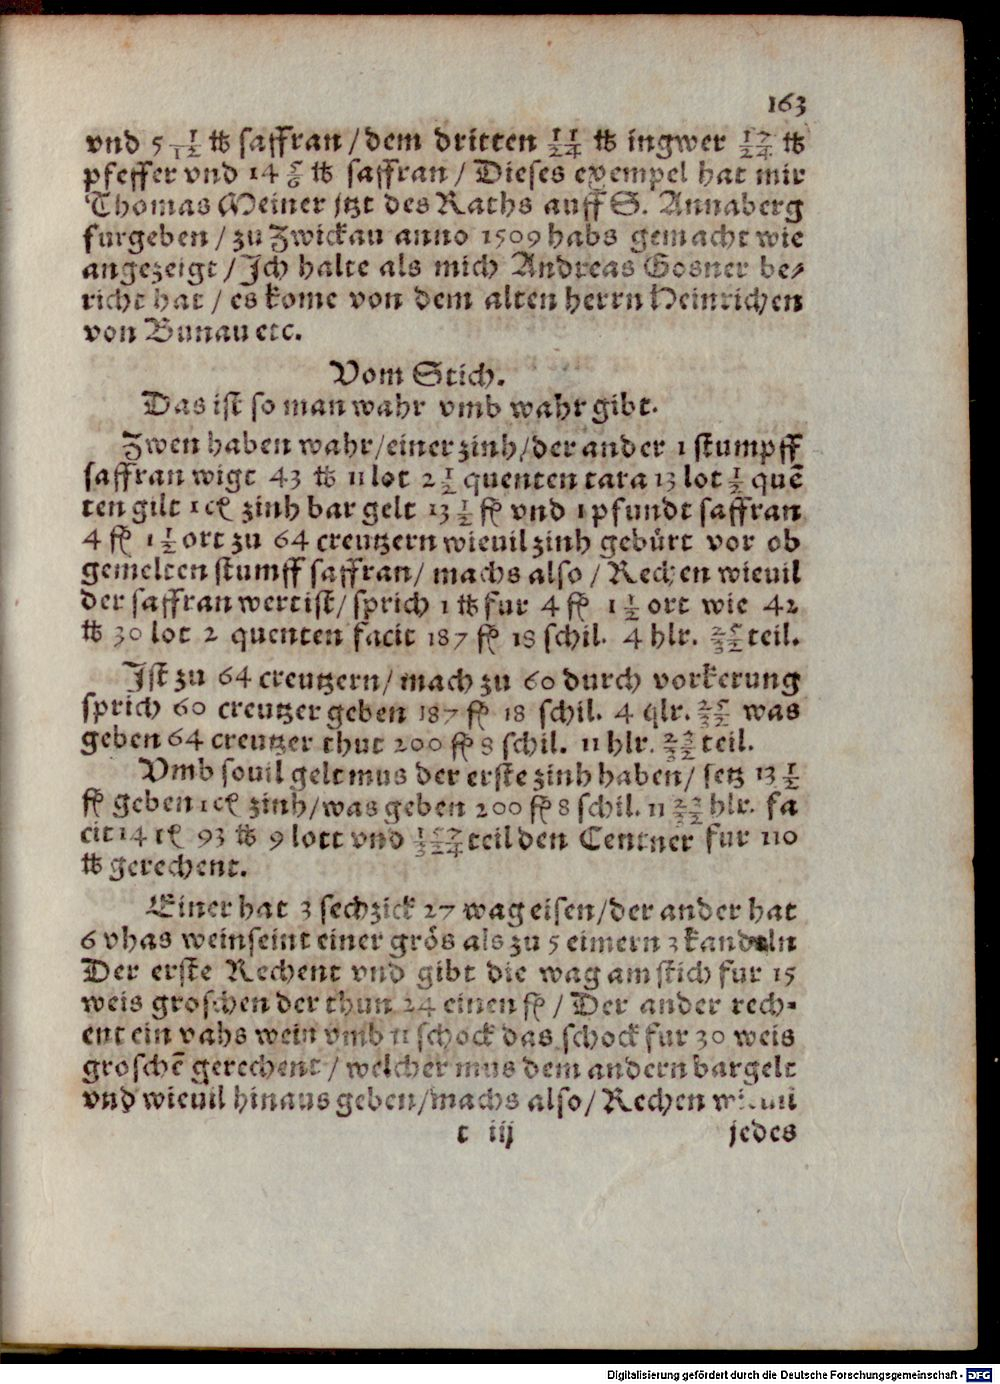 163
vnd 5 1/12 ℔ saffran / dem dritten 11/24 ℔ ingwer 17/24 ℔
pfeffer vnd 14 5/6 ℔ saffran / Dieses exempel hat mir
Thomas Meiner jtzt des Raths auff S. Annaberg
furgeben / zu Zwickau anno 1509 habs gemacht wie
angezeigt / Jch halte als mich Andreas Gosner be⸗
richt hat / es kome von dem alten herrn Heinrichen
von Bunau etc.
Vom Stich.
Das ist so man wahr vmb wahr gibt.
Zwen haben wahr / einer zinh / der ander 1 stumpff
saffran wigt 43 ℔ 11 lot 2 1/2 quenten tara 13 lot 1/2 quē
ten gilt 1 cꝭ zinh bar gelt 13 1/2 fꝭ vnd 1 pfundt saffran
4 fꝭ 1 1/2 ort zu 64 creutzern wieuil zinh gebürt vor ob
gemelten stumff saffran / machs also / Rechen wieuil
der saffran wert ist / sprich 1 ℔ fur 4 fꝭ 1 1/2 ort wie 42
℔ 30 lot 2 quenten facit 187 fꝭ 18 schil. 4 hlr. 25/32 teil.
Jst zu 64 creutzern / mach zu 60 durch vorkerung
sprich 60 creutzer geben 187 fꝭ 18 schil. 4 qlr. 25/32 was
geben 64 creutzer thut 200 fꝭ 8 schil. 11 hlr. 23/32 teil.
Vmb souil gelt mus der erste zinh haben / setz 13 1/2
fꝭ geben 1 cꝭ zinh / was geben 200 fꝭ 8 schil. 11 23/32 hlr. fa
cit 14 cꝭ 93 ℔ 9 lott vnd teil den Centner fur 110
℔ gerechent.
Einer hat 3 sechzick 27 wag eisen / der ander hat
6 vhas wein seint einer grös als zu 5 eimern 3 kandeln
Der erste Rechent vnd gibt die wag am stich fur 15
weis groschen der thun 24 einen fꝭ / Der ander rech⸗
ent ein vahs wein vmb 11 schock das schock fur 30 weis
groschē gerechent / welcher mus dem andern bar gelt
vnd wieuil hinaus geben / machs also / Rechen wieuil
t iij jedes
Digitalisierung gefördert durch die Deutsche Forschungsgemeinschaft - DFG